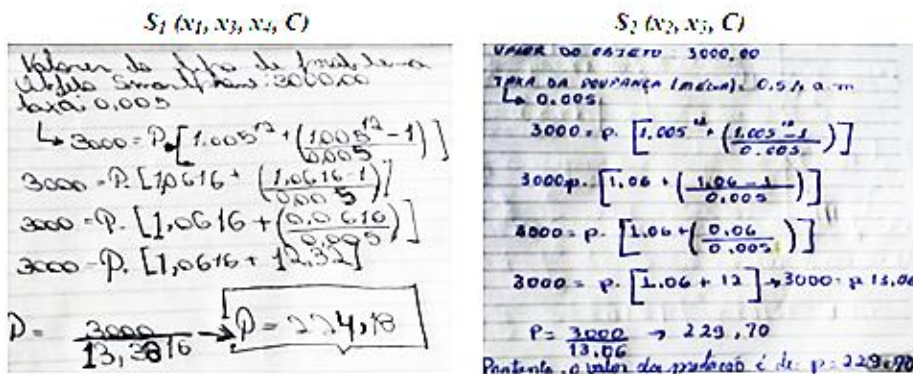 S₁ (x₁, x₃, x₄, C)
Valores do tipo de problema
Smartphone: 3000,00
taxa: 0,005
↳ 3000 = P. [1.005¹² + (1.005¹² - 1 / 0.005)]
3000 = P. [1,0616 + (1,0616 - 1 / 0,005)]
3000 = P. [1,0616 + (0,0616 / 0,005)]
3000 = P. [1,0616 + 12,32]
P = 3000 / 13,3816 → P = 224,18
S₂ (x₂, x₃, C)
VALOR DO OBJETO: 3000,00
TAXA DA POUPANÇA (MÉDIA): 0,5% a.m
↳ 0.005
3000 = p. [1.005¹² + (1.005¹² - 1 / 0.005)]
3000 p. [1.06 + (1.06 - 1 / 0.005)]
3000 = p. [1.06 + (0.06 / 0.005)]
3000 = p. [1.06 + 12] → 3000 = p 13.06
P = 3000 / 13.06 → 229,70
Portanto, o valor da é de p = 229,70